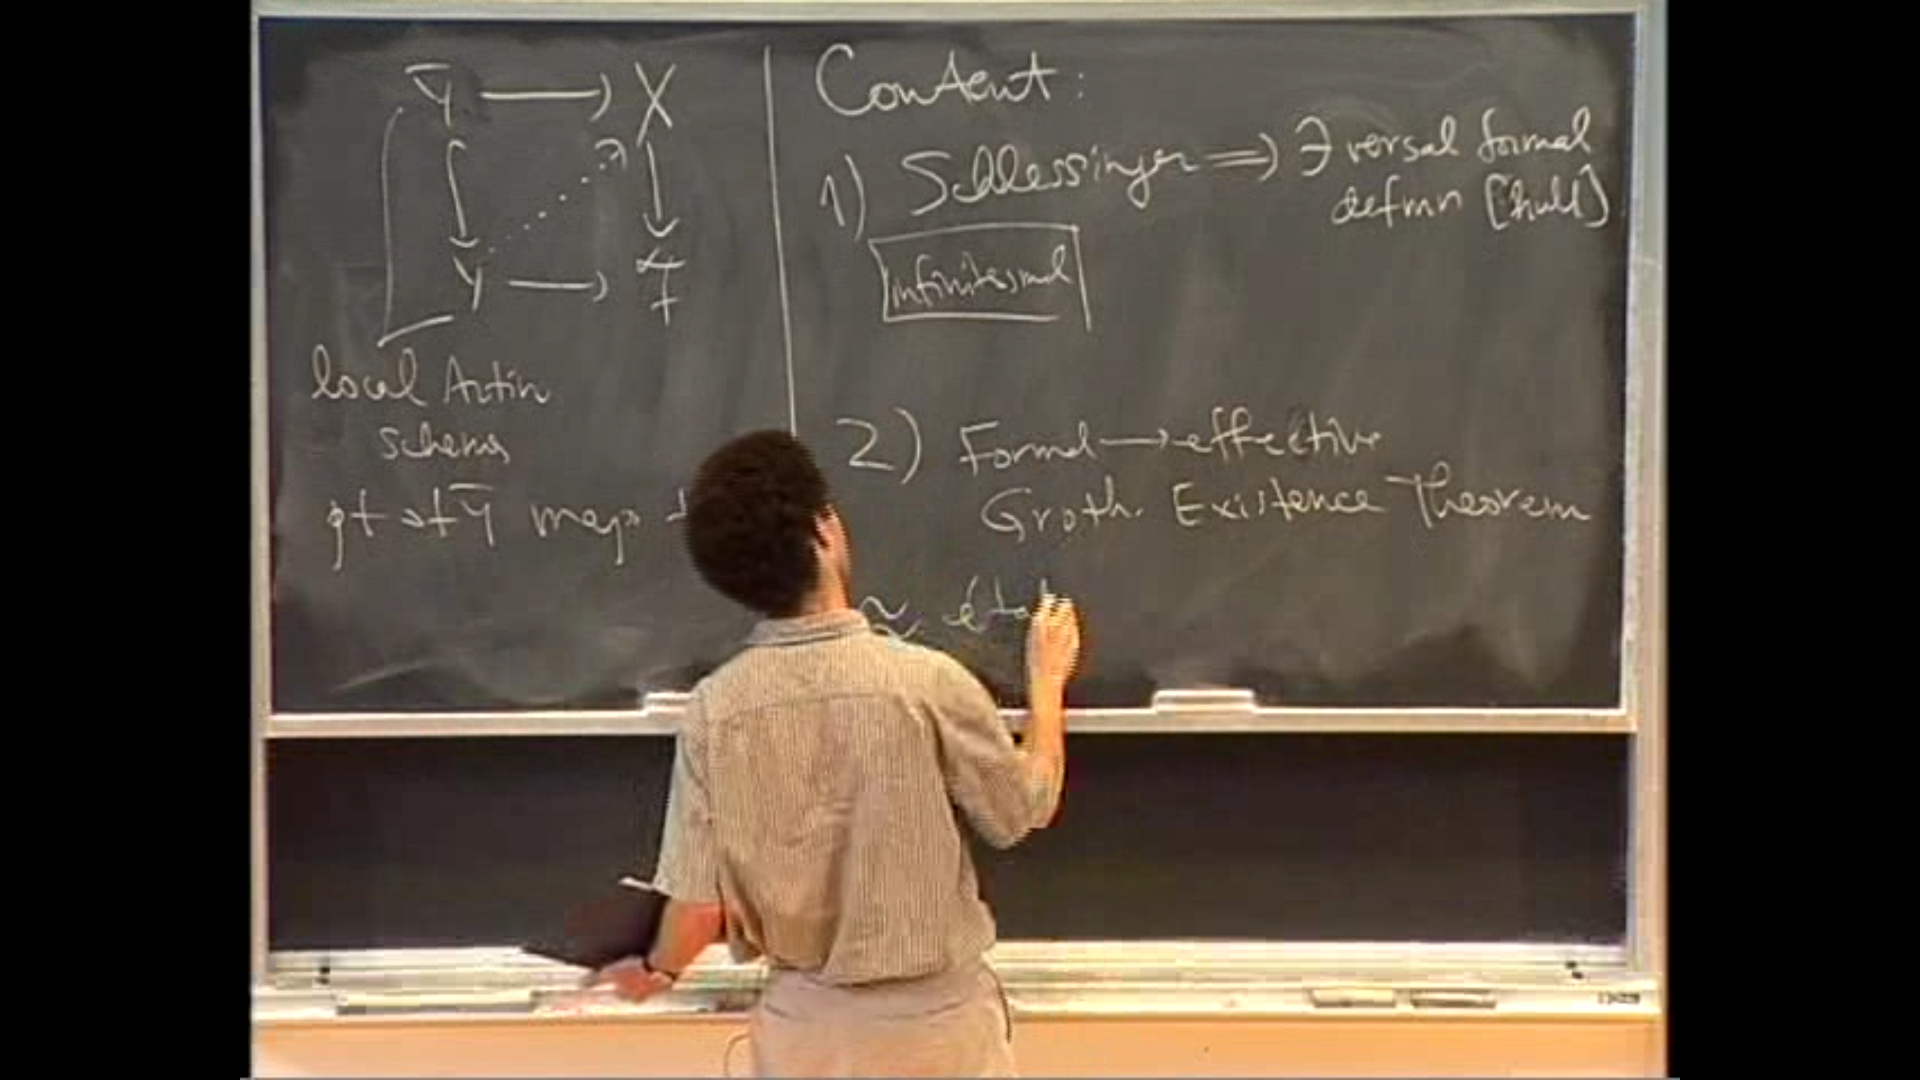 Ȳ → X
Y → F
local Artin
schems
pt of Ȳ maps
Content:
1) Schlessinger ⇒ ∃ versal formal
defmn [hull]
infinitesimal
2) Formal → effective
Groth. Existence Theorem
≈ éta